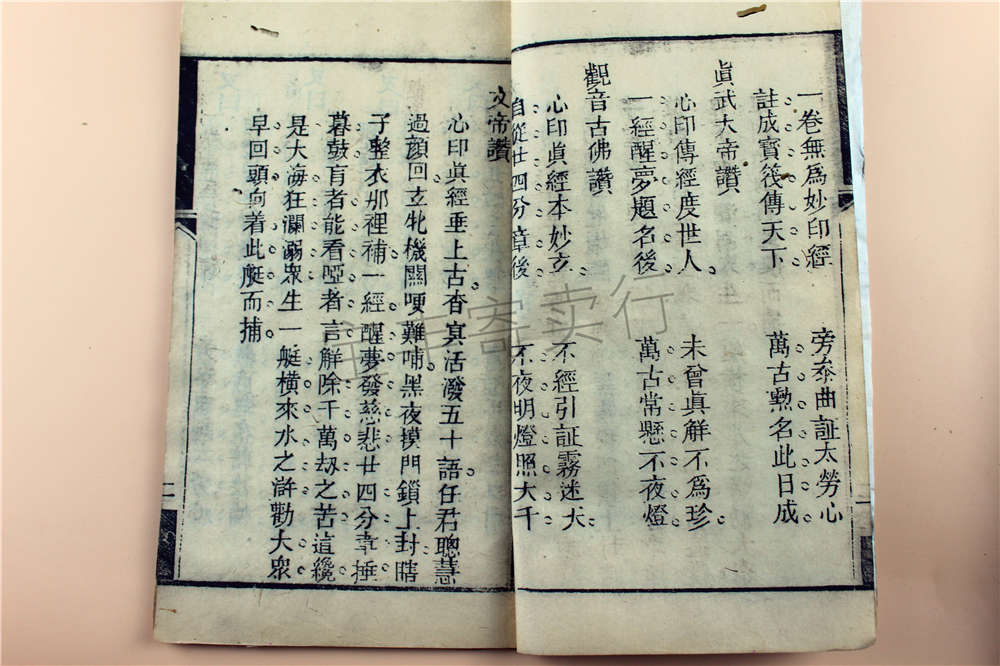 一卷無爲妙印經 旁叅曲証太勞心
註成寶筏傳天下 萬古勲名此日成
眞武大帝讚
心印傳經度世人 未曾眞解不爲珍
一經醒夢題名後 萬古常懸不夜燈
觀音古佛讚
心印眞經本妙玄 不經引証霧迷天
自從廿四分章後 不夜明燈照大千
文帝讚
心印眞經垂上古杳眞活潑五十語任君聰慧
過顔回玄牝機關哽難哺黑夜摸門鎖上封瞎
子整衣那裡補一經醒夢發慈悲廿四分章捶
暮鼓肓者能看啞者言解除千萬刧之苦這纔
是大海狂瀾溺衆生一艇橫來水之滸勸大衆
早回頭向着此艇而捕
二
寄卖行